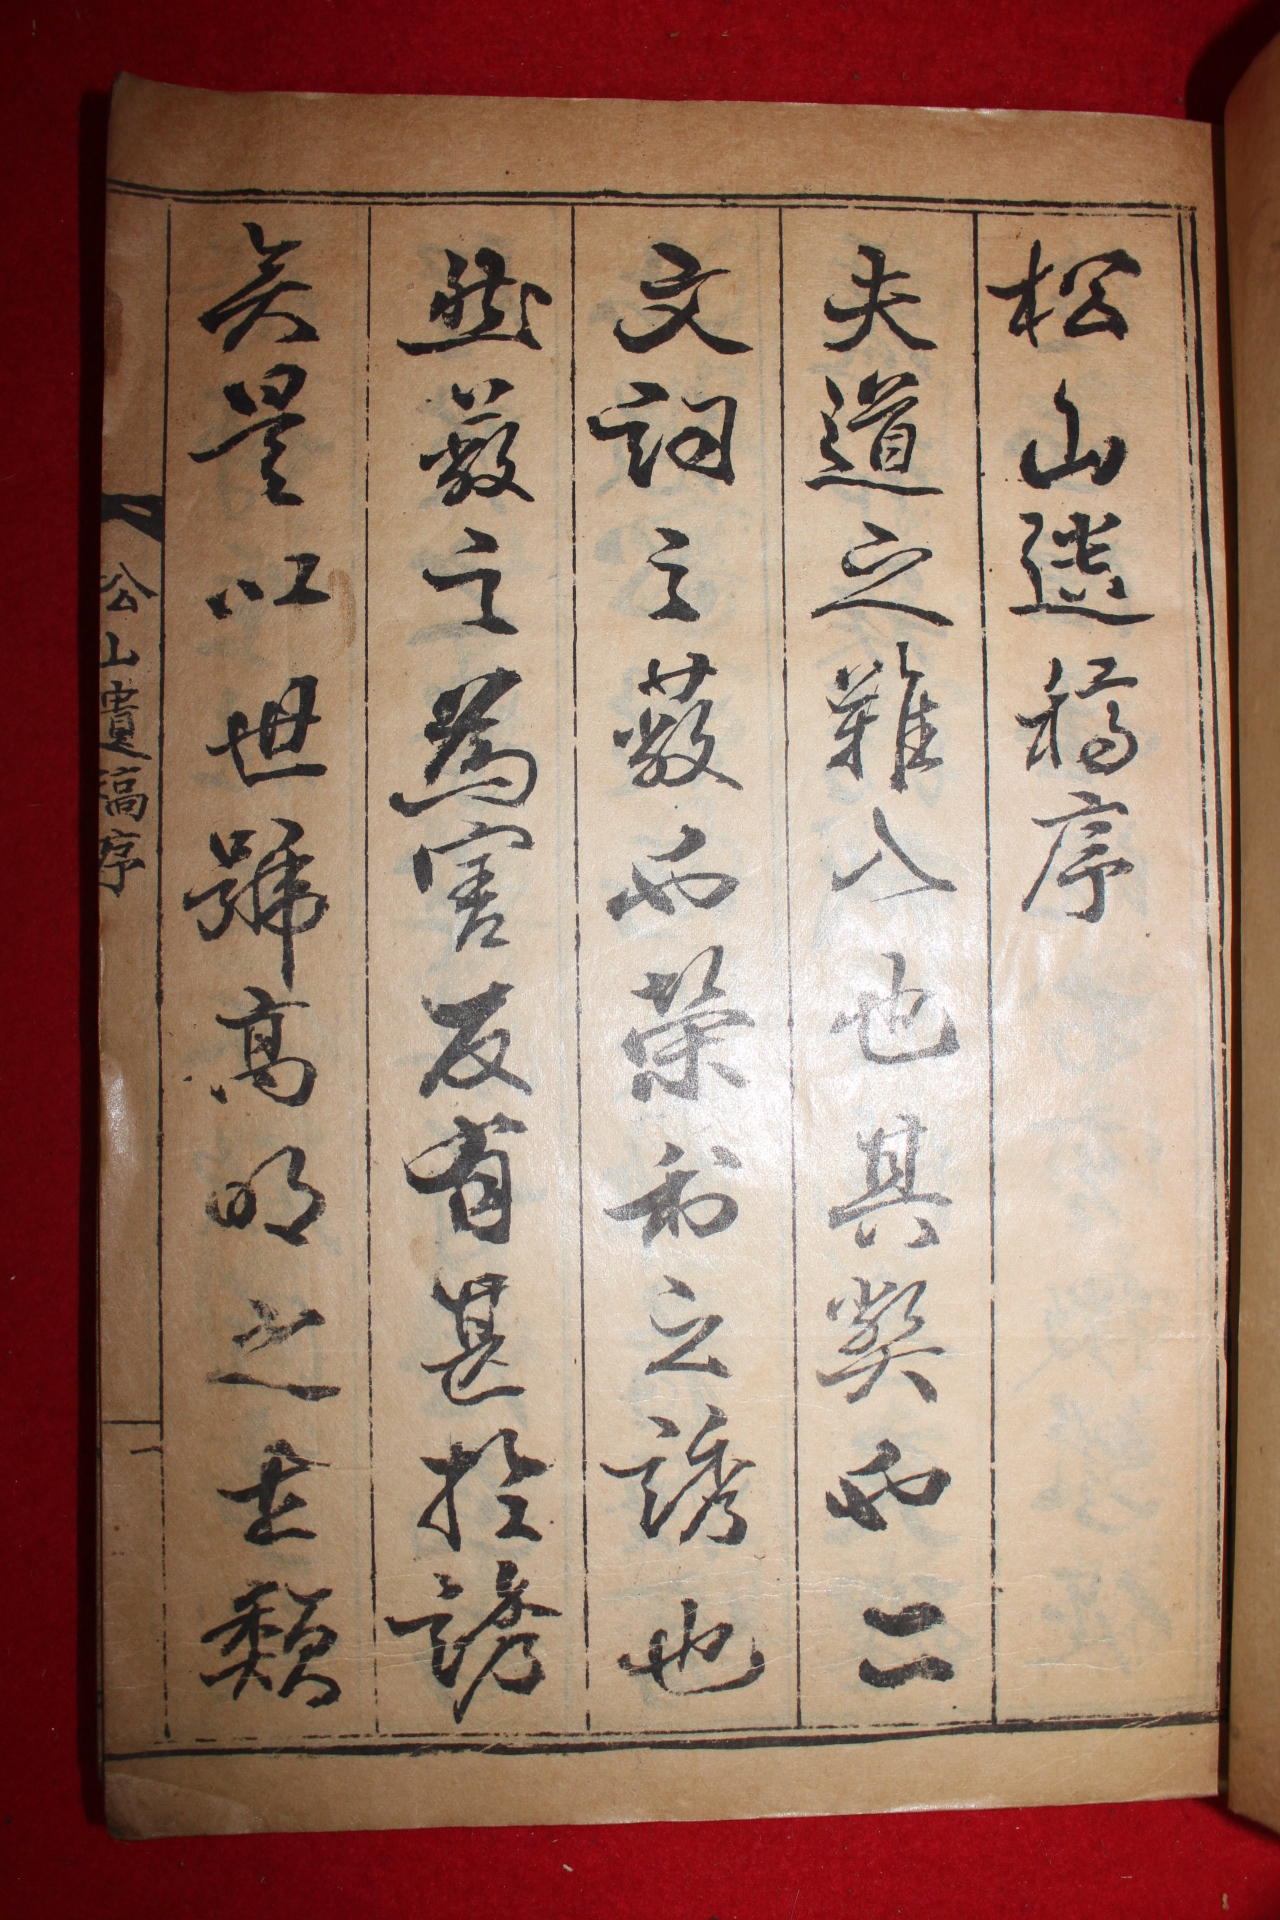 松山遺稿序
夫道之難入也其獘而二
文詞之蔽而榮利之誘也
然蔽之為害反有甚於誘
矣是以世號高明之士類
松山遺稿序
一